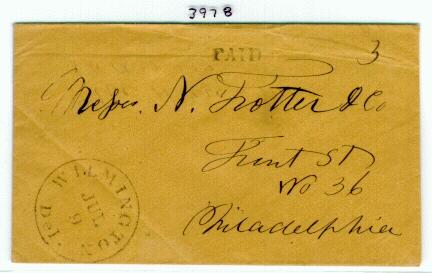 3978
PAID
3
Messrs. N. Trotter & Co
Front St
No 36
Philadelphia
WILMINGTON DEL.
JUL
9